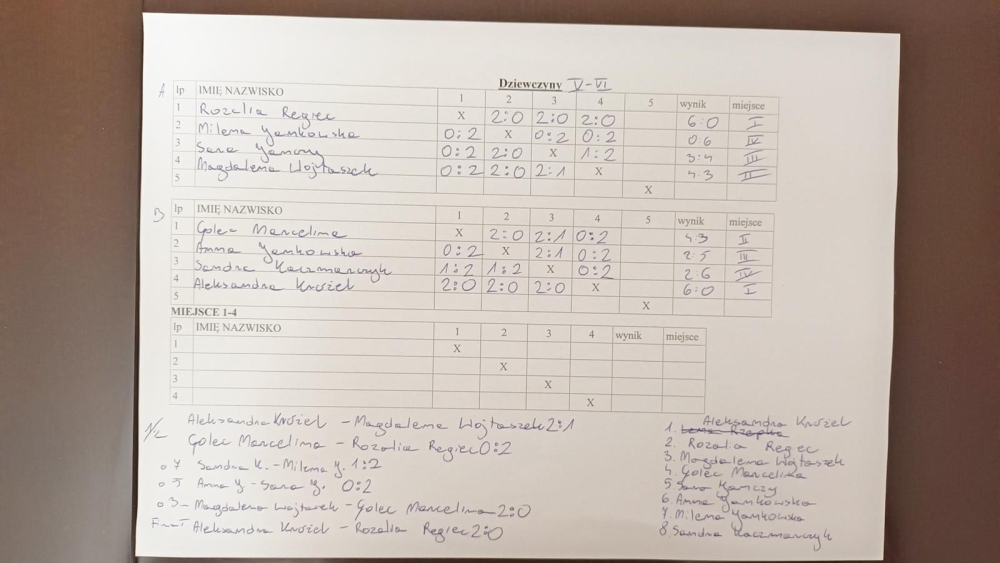 Dziewczyny V-VI
A lp IMIĘ NAZWISKO 1 2 3 4 5 wynik miejsce
1 Rozalia Regiec X 2:0 2:0 2:0 6:0 I
2 Milena Jamkowska 0:2 X 0:2 0:2 0:6 IV
3 Sara Jamczy 0:2 2:0 X 1:2 3:4 III
4 Magdalena Wojtaszek 0:2 2:0 2:1 X 4:3 II
5 X
B lp IMIĘ NAZWISKO 1 2 3 4 5 wynik miejsce
1 Golec Marcelina X 2:0 2:1 0:2 4:3 II
2 Anna Jamkowska 0:2 X 2:1 0:2 2:5 III
3 Sandra Kaczmarczyk 1:2 1:2 X 0:2 2:6 IV
4 Aleksandra Knózel 2:0 2:0 2:0 X 6:0 I
5 X
MIEJSCE 1-4
lp IMIĘ NAZWISKO 1 2 3 4 wynik miejsce
1 X
2 X
3 X
4 X
1/2 Aleksandra Knózel - Magdalena Wojtaszek 2:1
Golec Marcelina - Rozalia Regiec 0:2
o 7 Sandra K. - Milena J. 1:2
o 5 Anna J - Sara J. 0:2
o 3 - Magdalena Wojtasek - Golec Marcelina - 2:0
Finał Aleksandra Knózel - Rozalia Regiec 2:0
Aleksandra Knózel
1. Lena Rzepka
2. Rozalia Regiec
3. Magdalena Wojtaszek
4. Golec Marcelina
5 Sara Jamczy
6. Anna Jamkowska
7. Milena Jamkowska
8. Sandra Kaczmarczyk